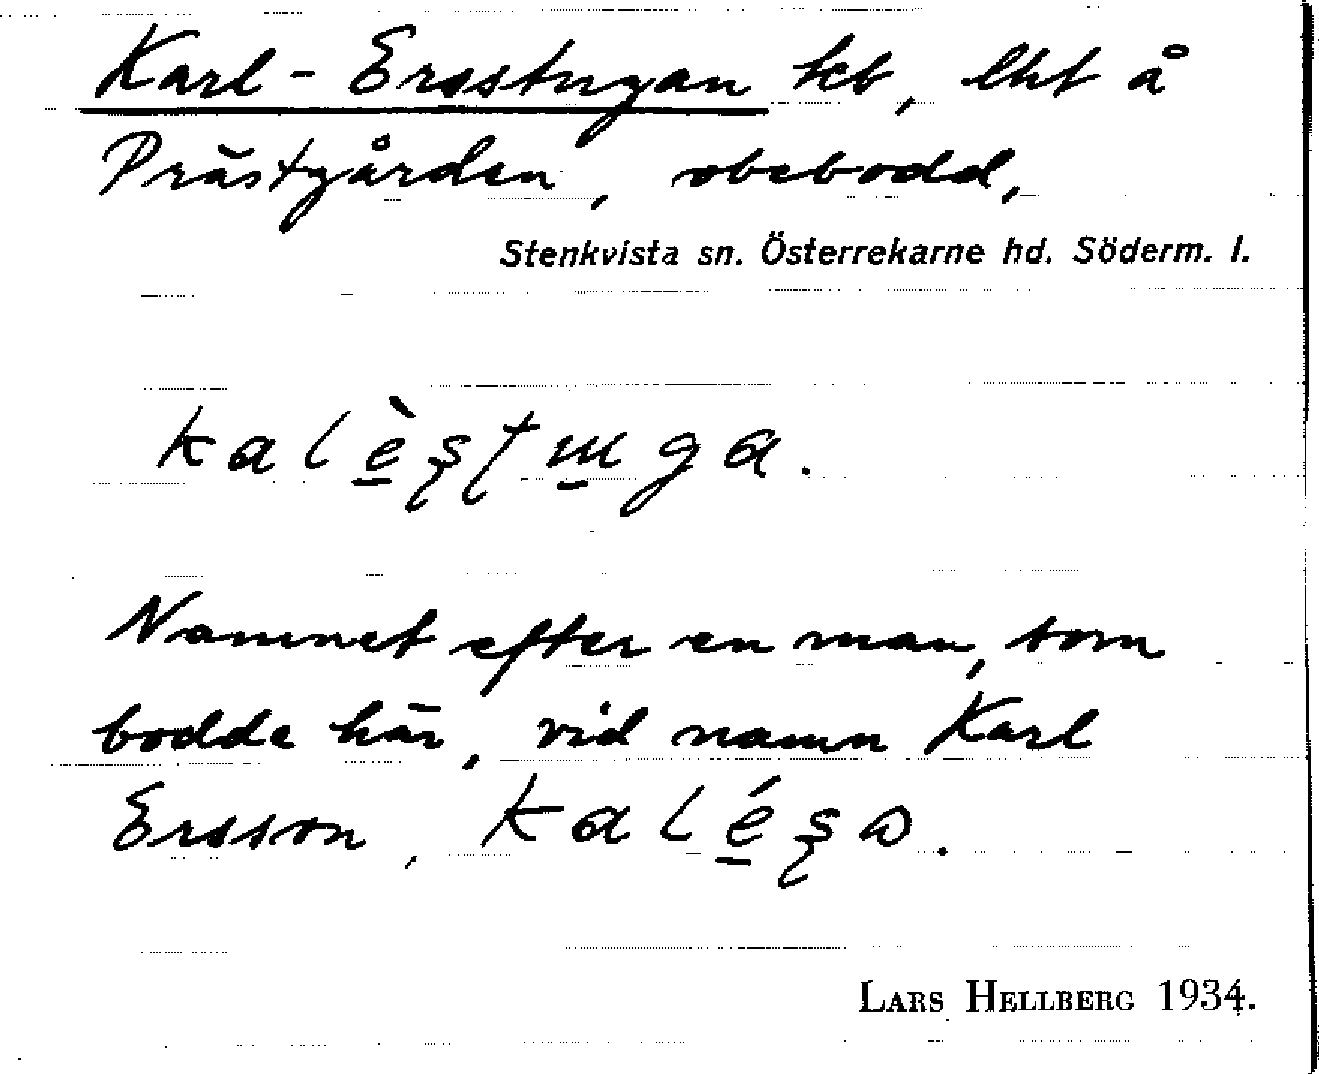 Karl-Ersstugan tcb, lht å
Prästgården, obebodd,
Stenkvista sn. Österrekarne hd. Söderm. l.
Namnet efter en man, som
bodde här, vid namn Karl
Ersson,
LARS HELLBERG 1934.